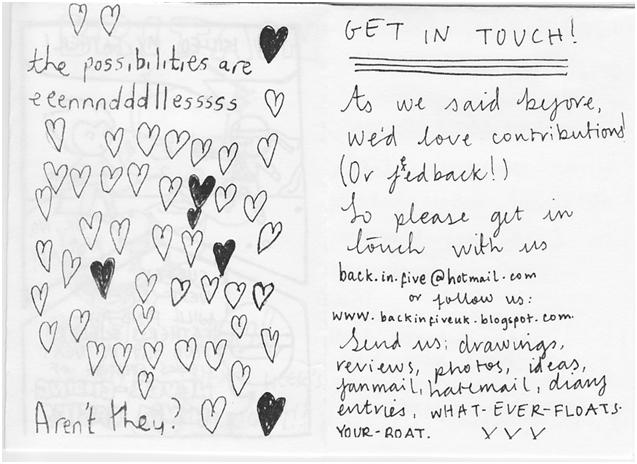 the possibilities are
eeennndddllesssss
Aren't they?
GET IN TOUCH!
As we said before,
we'd love contributions!
(Or feedback!)
So please get in
touch with us
back.in.five@hotmail.com
or follow us:
www.backinfiveuk.blogspot.com
Send us: drawings,
reviews, photos, ideas,
fanmail, hatemail, diary
entries, WHAT-EVER-FLOATS-
YOUR-BOAT.